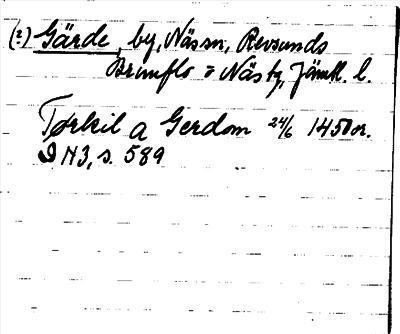 (2) Gärde, by, Näs sn, Revsunds
Brunflo o Näs tg, Jämtl. l.
Torkil a Gerdom 24/6 1450 or.
DN 3, s. 589